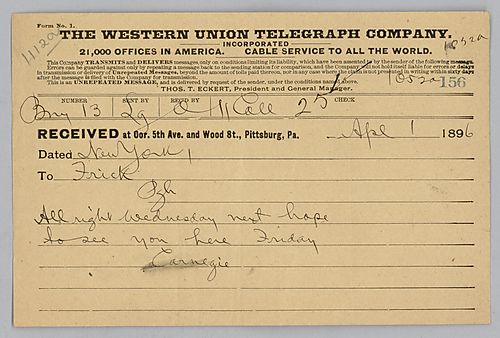 Form No. 1.
THE WESTERN UNION TELEGRAPH COMPANY.
INCORPORATED
21,000 OFFICES IN AMERICA. CABLE SERVICE TO ALL THE WORLD.
This Company TRANSMITS and DELIVERS messages only on conditions limiting its liability, which have been assented to by the sender of the following message.
Errors can be guarded against only by repeating a message back to the sending station for comparison, and the Company will not hold itself liable for errors or delays
in transmission or delivery of Unrepeated Messages, beyond the amount of tolls paid thereon, nor in any case where the claim is not presented in writing within sixty days
after the message is filed with the Company for transmission.
This is an UNREPEATED MESSAGE, and is delivered by request of the sender, under the conditions named above.
THOS. T. ECKERT, President and General Manager.
1112a
1052a
156
NUMBER SENT BY REC'D BY CHECK
13 11 Coll 25
RECEIVED at Cor. 5th Ave. and Wood St., Pittsburg, Pa. Apl 1 1896
Dated New York 1
To Frick
Pgh
All right Wednesday next hope
to see you here Friday
Carnegie